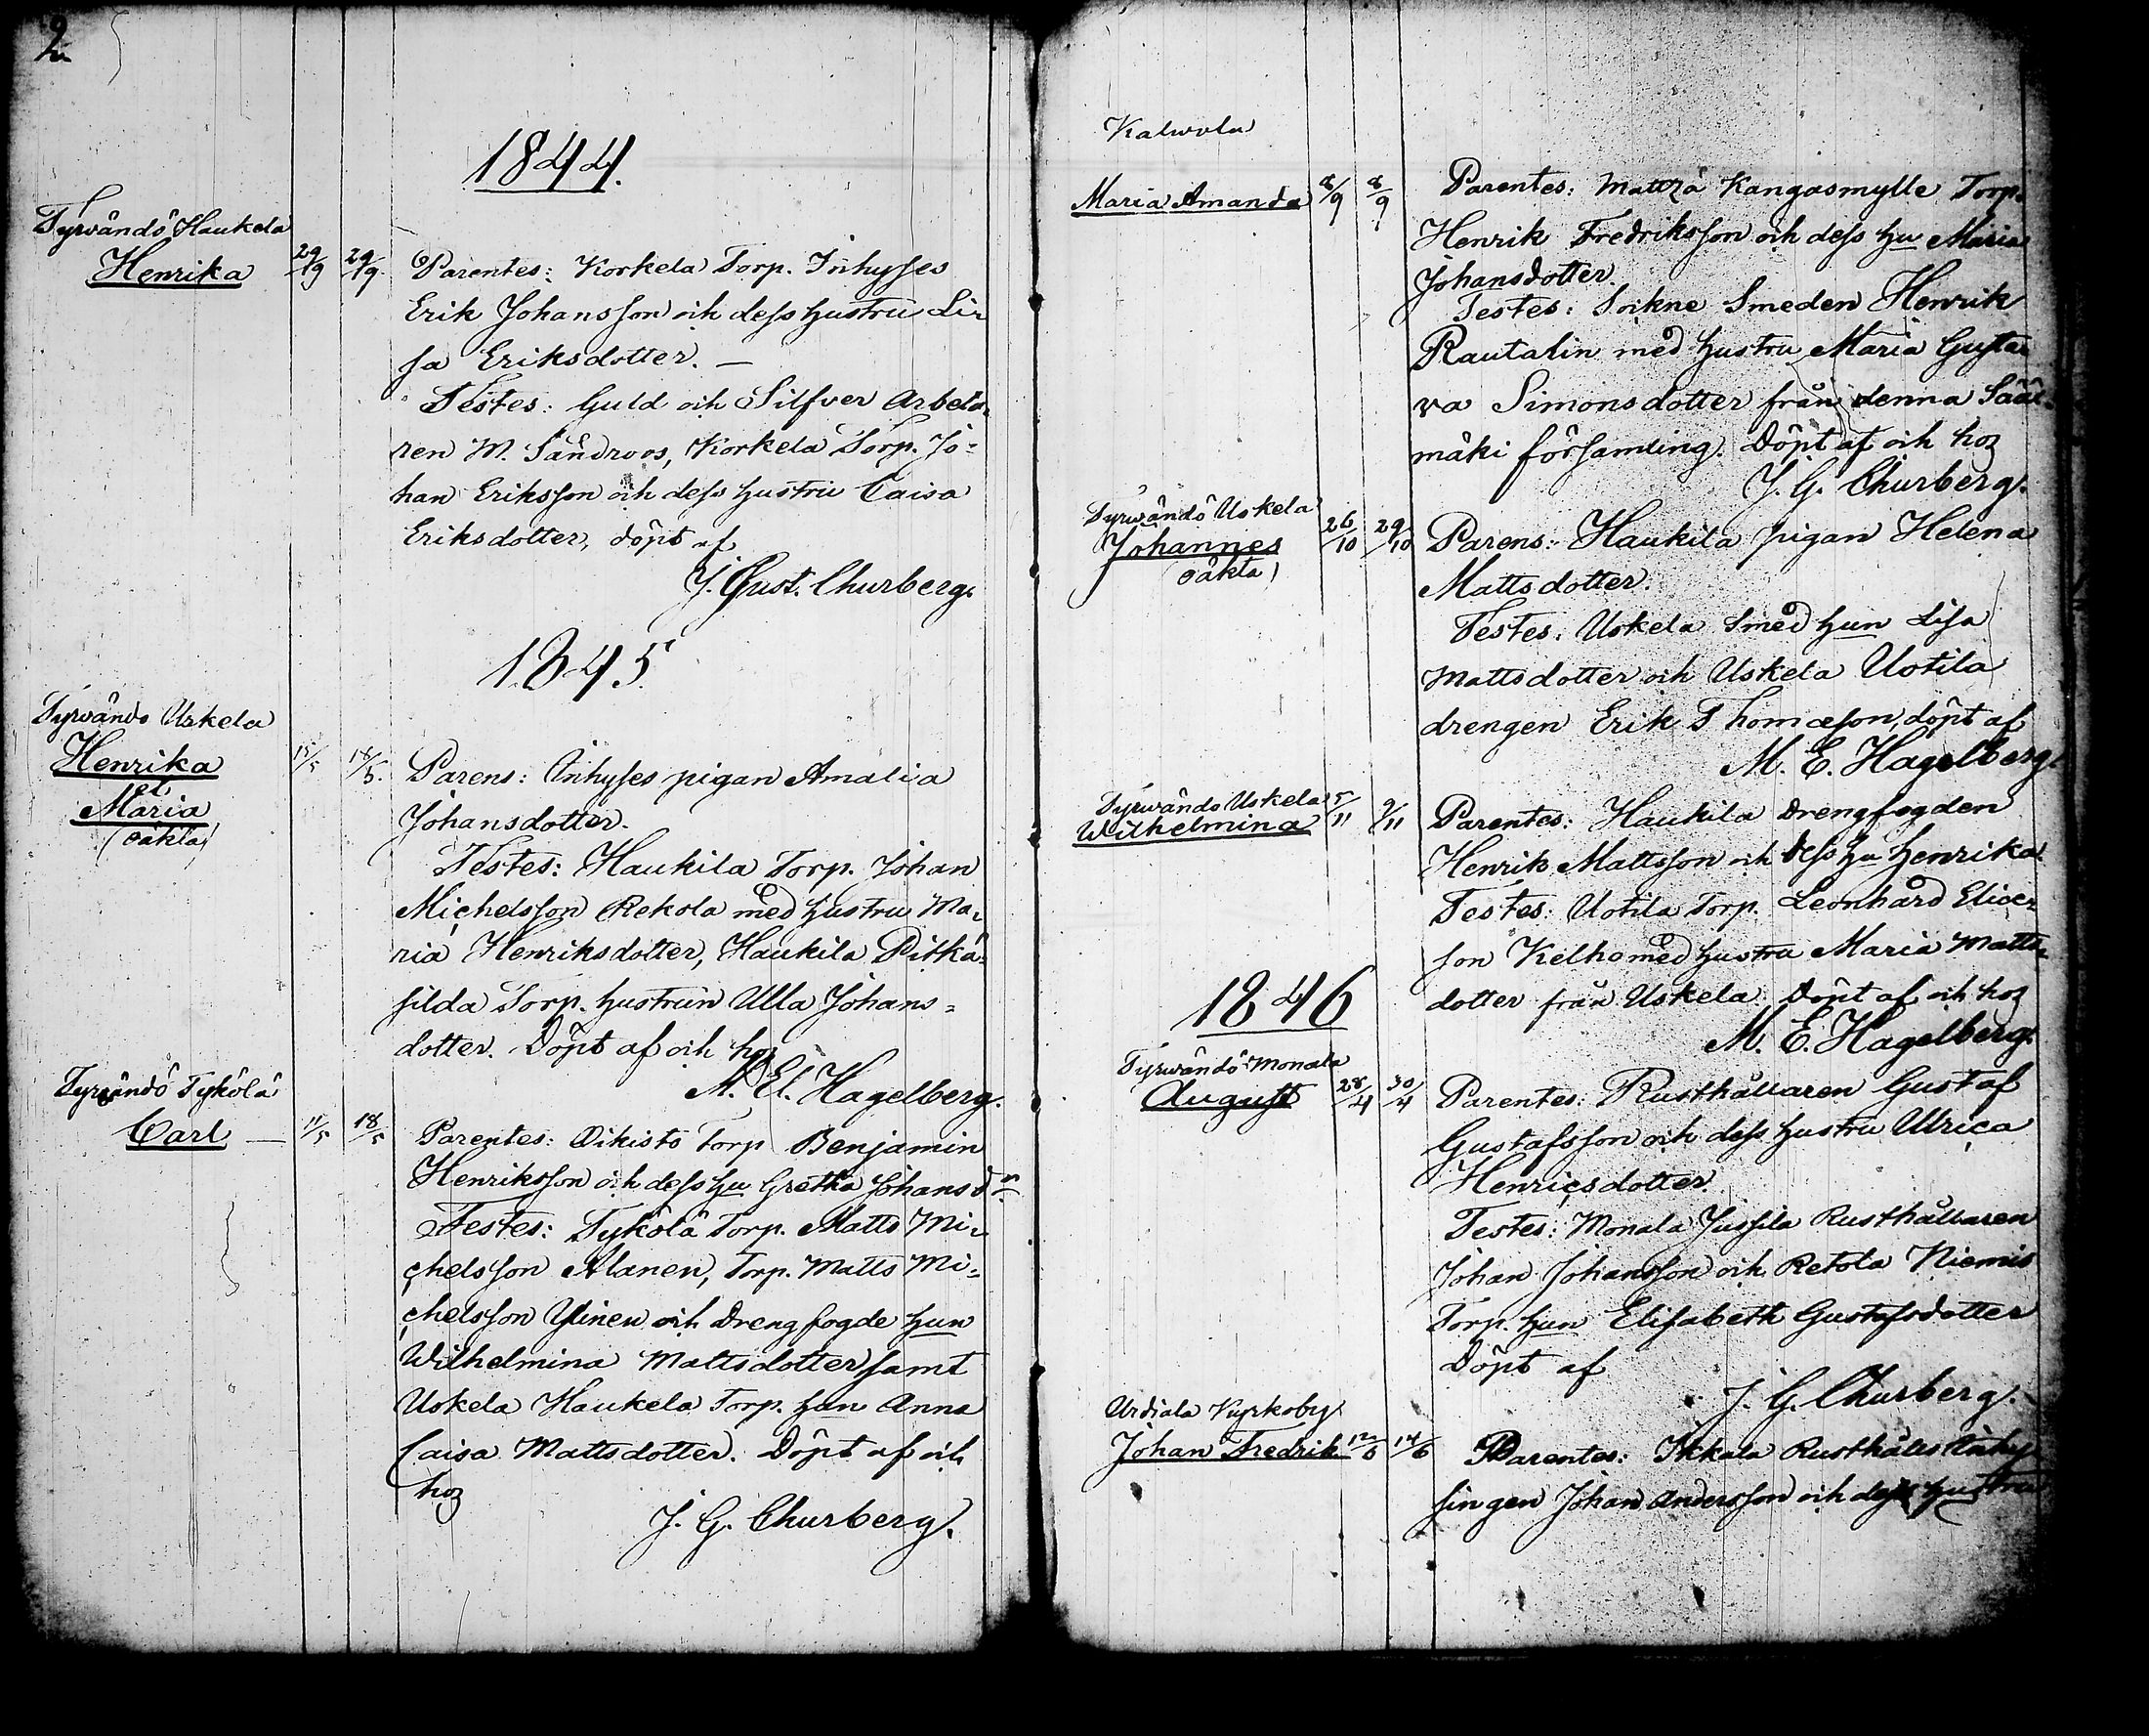 2
1844.
Tyrvändö Haukela
Henrika 29/9 29/9. Parentes: Korkela Torp. Inhyses
Erik Johansson och dess hustru Li-
sa Eriksdotter. —
Testes: Guld och Silfver Arbeta-
ren M. Sandroos, Korkela Torp. Jo-
han Eriksson och dess hustru Caisa
Eriksdotter, döpt af
J. Gust. Churberg.
1845.
Tyrvändö Uskela
Henrika 15/5 18/5. Parens: Inhyses pigan Amalia
et
Maria Johansdotter.
(oäkta)
Testes: Haukila Torp. Johan
Michelsson Rekola med hustru Ma-
ria Henriksdotter, Haukila Pitkä-
silda Torp. hustrun Ulla Johans=
dotter. Döpt af och hos
M. El. Hagelberg.
Tyrvändö Tykölä
Carl — 11/5 18/5 Parentes: Oikisto Torp Benjamin
Henriksson och dess hu Gretha Johansdr
Testes: Tykölä Torp. Matts Mi-
chelsson Alanen, Torp. Matts Mi=
chelsson Ylinen och Drengfogde hun
Wilhelmina Mattsdotter samt
Uskela Haukela Torp. hun Anna
Caisa Mattsdotter. Döpt af och
hos
J. G. Churberg.
Kalwola
Maria Amanda 8/9 8/9 Parentes: Kangasmylle Torp.
Henrik Fredriksson och dess hu Maria
Johansdotter.
Testes: Sockne Smeden Henrik
Rautalin med hustru Maria Gusta-
va Simonsdotter från denna Sääx-
mäki församling. Döpt af och hos
J. G. Churberg.
Tyrwändö Uskela
Johannes 26/10 29/10 Parens: Haukila pigan Helena
(oäkta)
Mattsdotter.
Testes: Uskela Smed hun Lisa
Mattsdotter och Uskela Uotila
drengen Erik Thomæson, döpt af
M. E. Hagelberg.
Tyrwändö Uskela
Wilhelmina 5/11 9/11 Parentes: Haukila Drengfogden
Henrik Mattsson och dess hu Henrika
Testes: Uotila Torp. Leonhard Elicer
son Kelho med hustru Maria Matts-
dotter från Uskela. Döpt af och hos
M. E. Hagelberg.
1846
Tyrwändö Monala
August 28/4 30/4 Parentes: Rusthållaren Gustaf
Gustafsson och dess hustru Ulrica
Henricsdotter.
Testes: Monala Jussila Rusthållaren
Johan Johansson och Retola Niemis
Torp. hun Elisabeth Gustafsdotter
Döpt af
J. G. Churberg.
Urdiala Kyrkoby
Johan Fredrik 12/6 14/6 Parentes: Ikkala Rusthålls Inhy
singen Johan Andersson och dess hustru